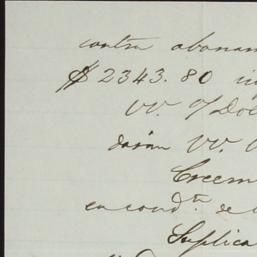 contra abonam
$ 2343.80 in
VV. 
darán VV.
Creem
en cond.ⁿ de
Suplica